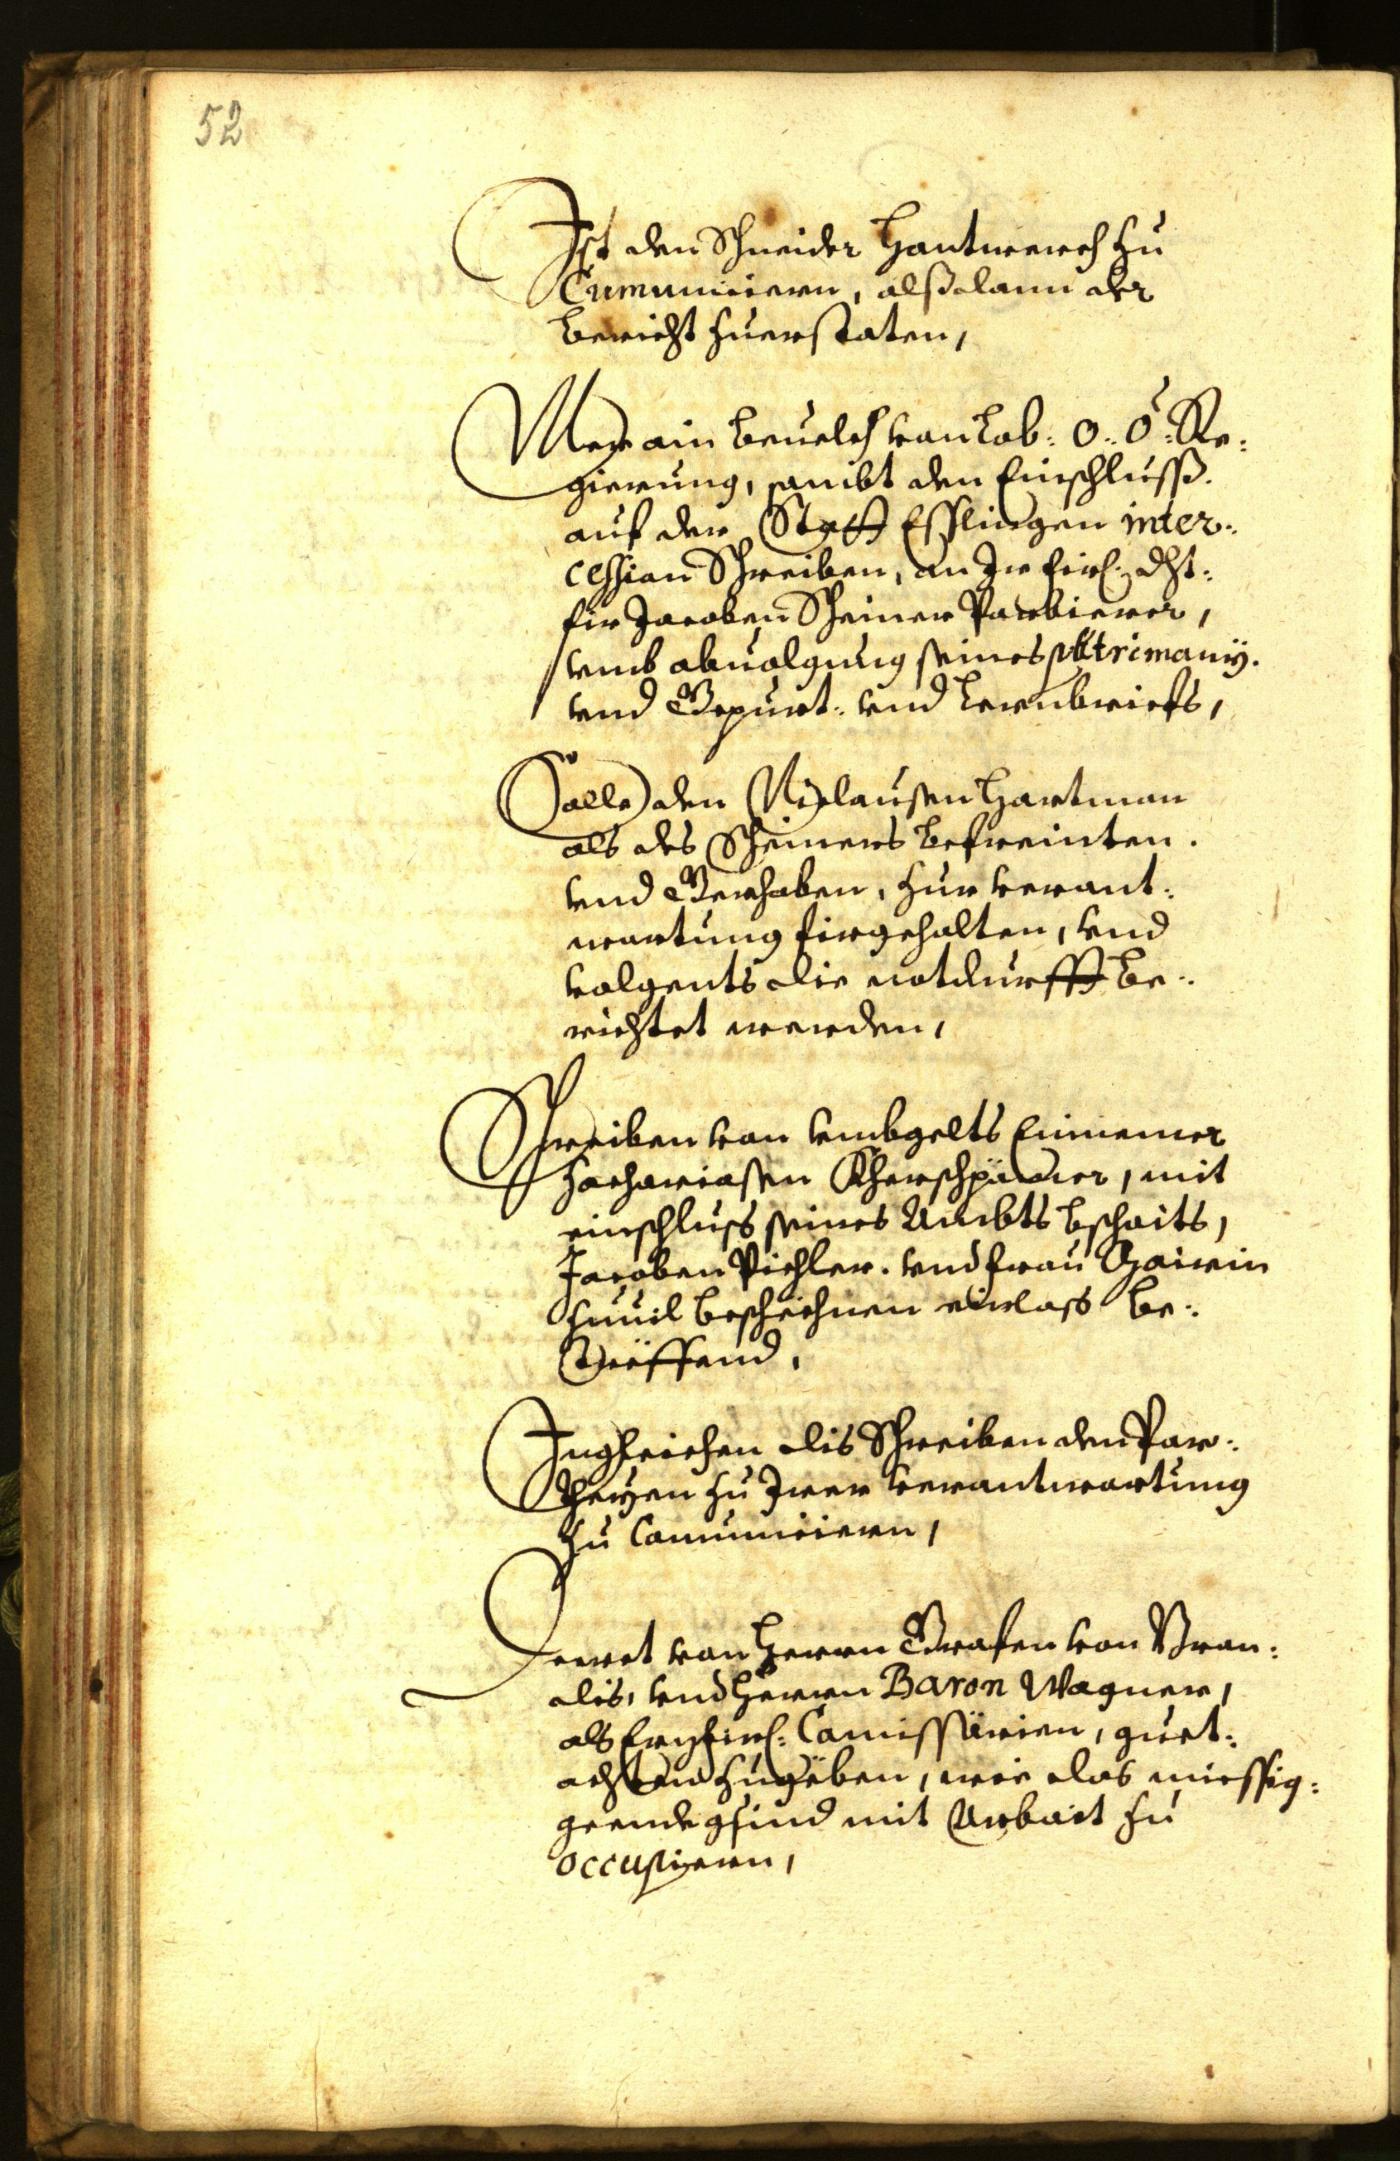 52
Ist den Schneider Hantwerch zu
Cumuniciern, alßdann der
bericht zuerstaten,
Mer ain beuelch von Lob: O: Ö: Re:
gierung, sambt den Einschluss
auf der Statt Esslingen inter:
cession Schreiben, an Ir firl: dht:
fir Jacoben Scheiner Parbierer,
vmb abuolgung seines pattrimony.
vnd Gepurt: vnd Lernbriefs,
Solle den Niclausen Hartman
als des Scheiners befreinten.
vnd Gerhaben, zur verant:
wortung firgehalten, vnd
volgents die notdurfft be:
richtet werden,
Schreiben von vmbgelts Einnemer
Zachariasen Kherschpamer, mit
einschluss seines Ambts bschaits,
Jacoben Pichler. vnd frau
zuuil beschechnen einlass be:
treffend,
Ingleichen dis Schreiben den Par:
theyen zu Irer verantwortung
zu Comuniciern,
Decret von Herrn Grafen von Bran:
dis, vnd Herrn Baron Wagner,
als Erzfirl: Comissärien, guet:
achten zugeben, wie das miessig:
geende gsind mit Arbait zu
occupiern,